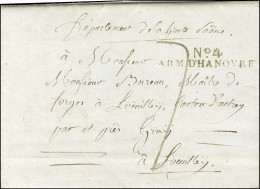 Département de la haute Saône
No. 4
ARM. D'HANOVRE
à Monsieur
Monsieur Bureau, Maître de
forges à Loeuilley, Canton d'autrey
par et près Gray
à Loeuilley